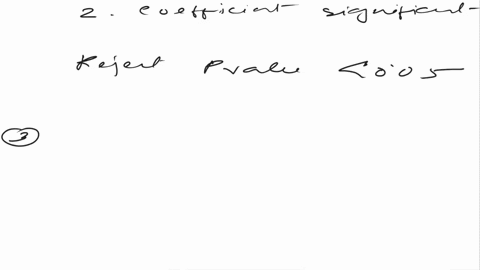 2. coefficient significant
Reject Pvalue <0.05
3